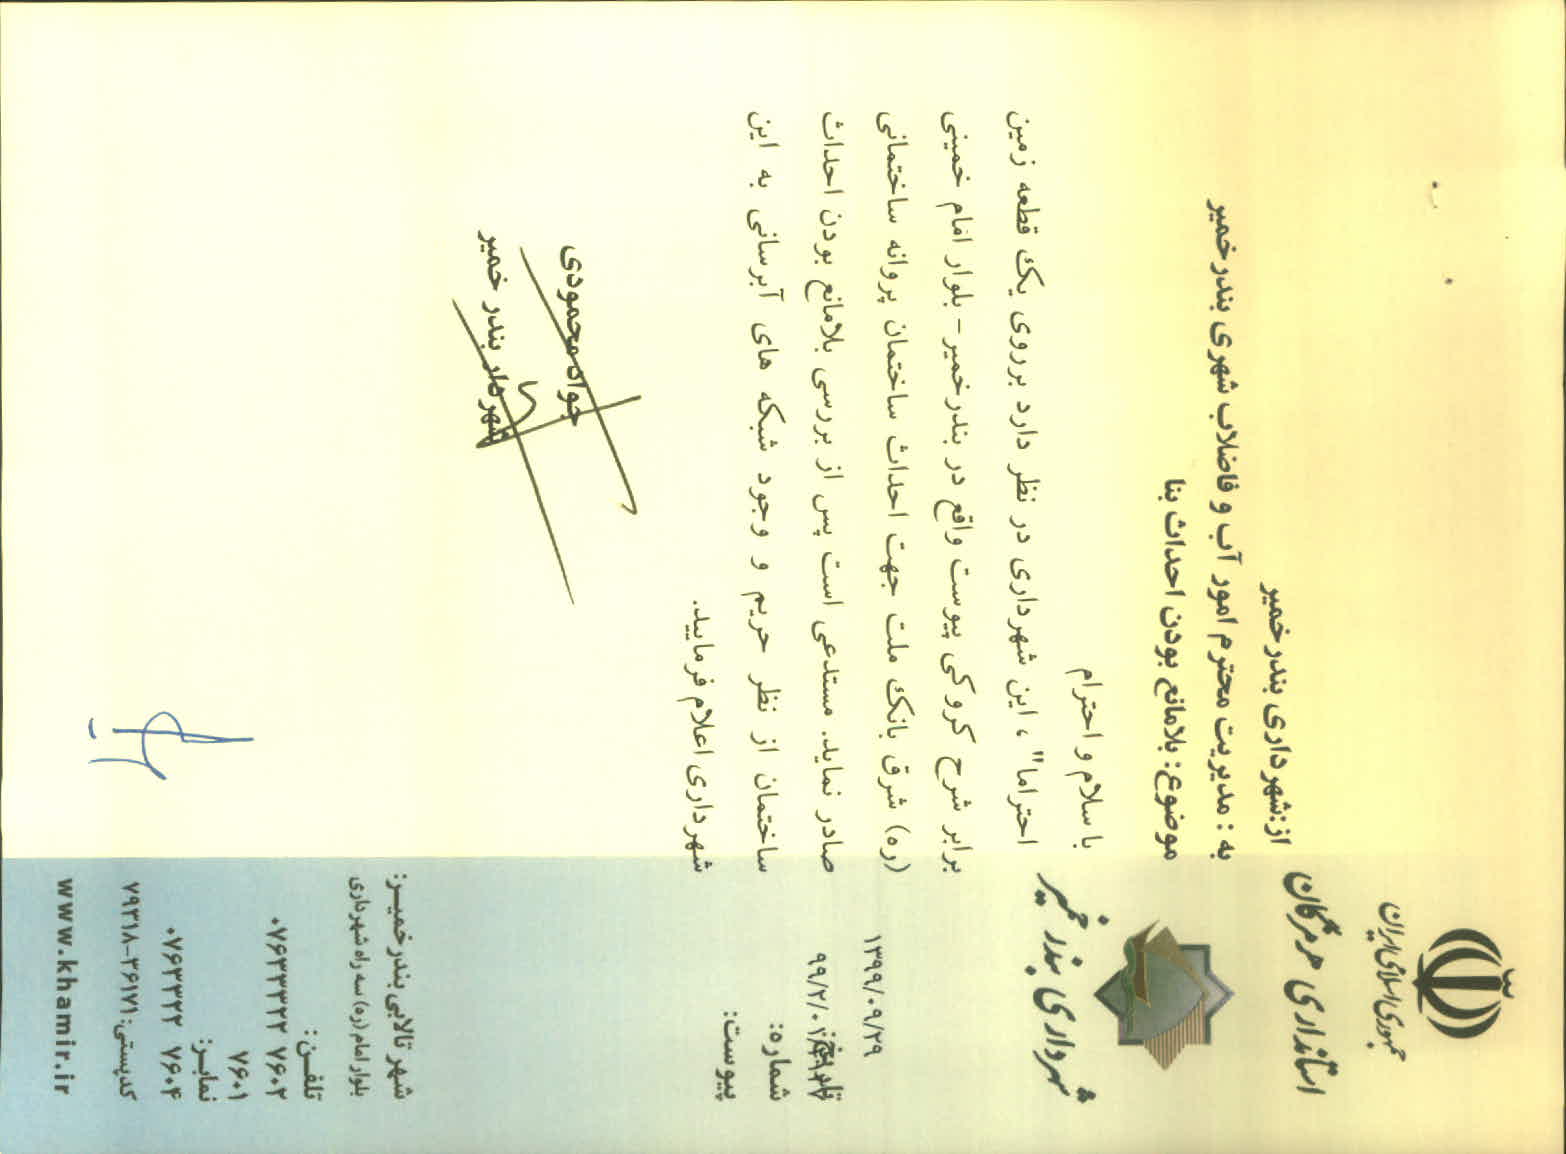 جمهوری اسلامی ایران
استانداری هرمزگان
شهرداری بندر خمیر
۱۳۹۹/۰۹/۲۹
تاریخ:
شماره:
پیوست:
از:شهرداری بندرخمیر
به : مدیریت محترم امور آب و فاضلاب شهری بندرخمیر
موضوع: بلامانع بودن احداث بنا
با سلام و احترام
احتراما" ، این شهرداری در نظر دارد برروی یک قطعه زمین
برابر شرح کروکی پیوست واقع در بندرخمیر - بلوار امام خمینی
(ره) شرق بانک ملت جهت احداث ساختمان پروانه ساختمانی
صادر نماید. مستدعی است پس از بررسی بلامانع بودن احداث
ساختمان از نظر حریم و وجود شبکه های آبرسانی به این
شهرداری اعلام فرمایید.
جواد محمودی
شهردار بندر خمیر
شهر تالابی بندرخمیـر:
بلوار امام (ره) سه راه شهرداری
تلفـن :
۰۷۶۳۳۳۲۲ ۷۶۰۲
۷۶۰۱
نمابـر:
۰۷۶۳۳۲۲ ۷۶۰۴
کدپستی: ۳۶۱۷۱-۷۹۳۱۸
www.khamir.ir